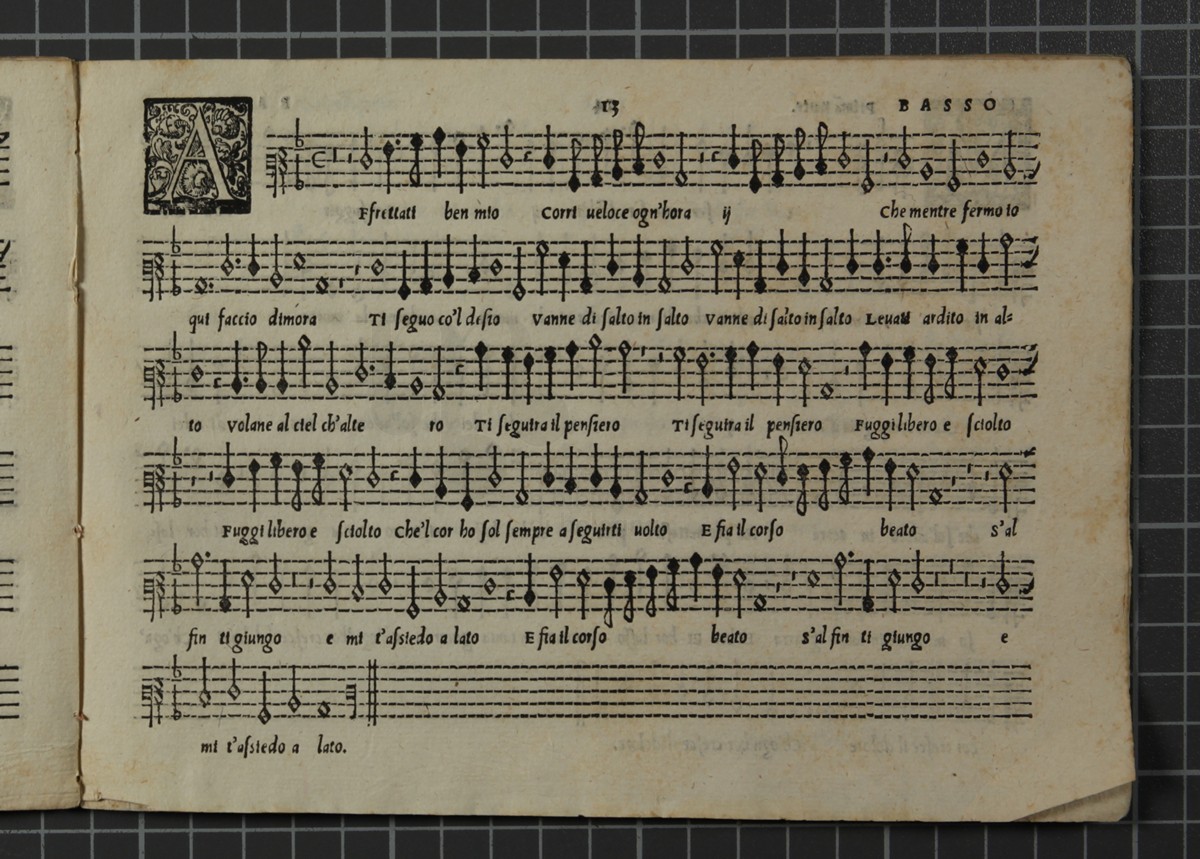 13 BASSO
AFfrettati ben mio Corri ueloce ogn'hora ij Che mentre fermo io
qui faccio dimora Ti ſeguo co'l deſio Vanne di ſalto in ſalto Vanne di ſalto in ſalto Leuati ardito in al=
to Volane al ciel ch'alte ro Ti ſeguira il penſiero Ti ſeguira il penſiero Fuggi libero e ſciolto
Fuggi libero e ſciolto Che'l cor ho ſol ſempre a ſeguirti uolto E fia il corſo beato S'al
fin ti giungo e mi t'aſsiedo a lato E fia il corſo beato S'al fin ti giungo e
mi t'aſsiedo a lato.